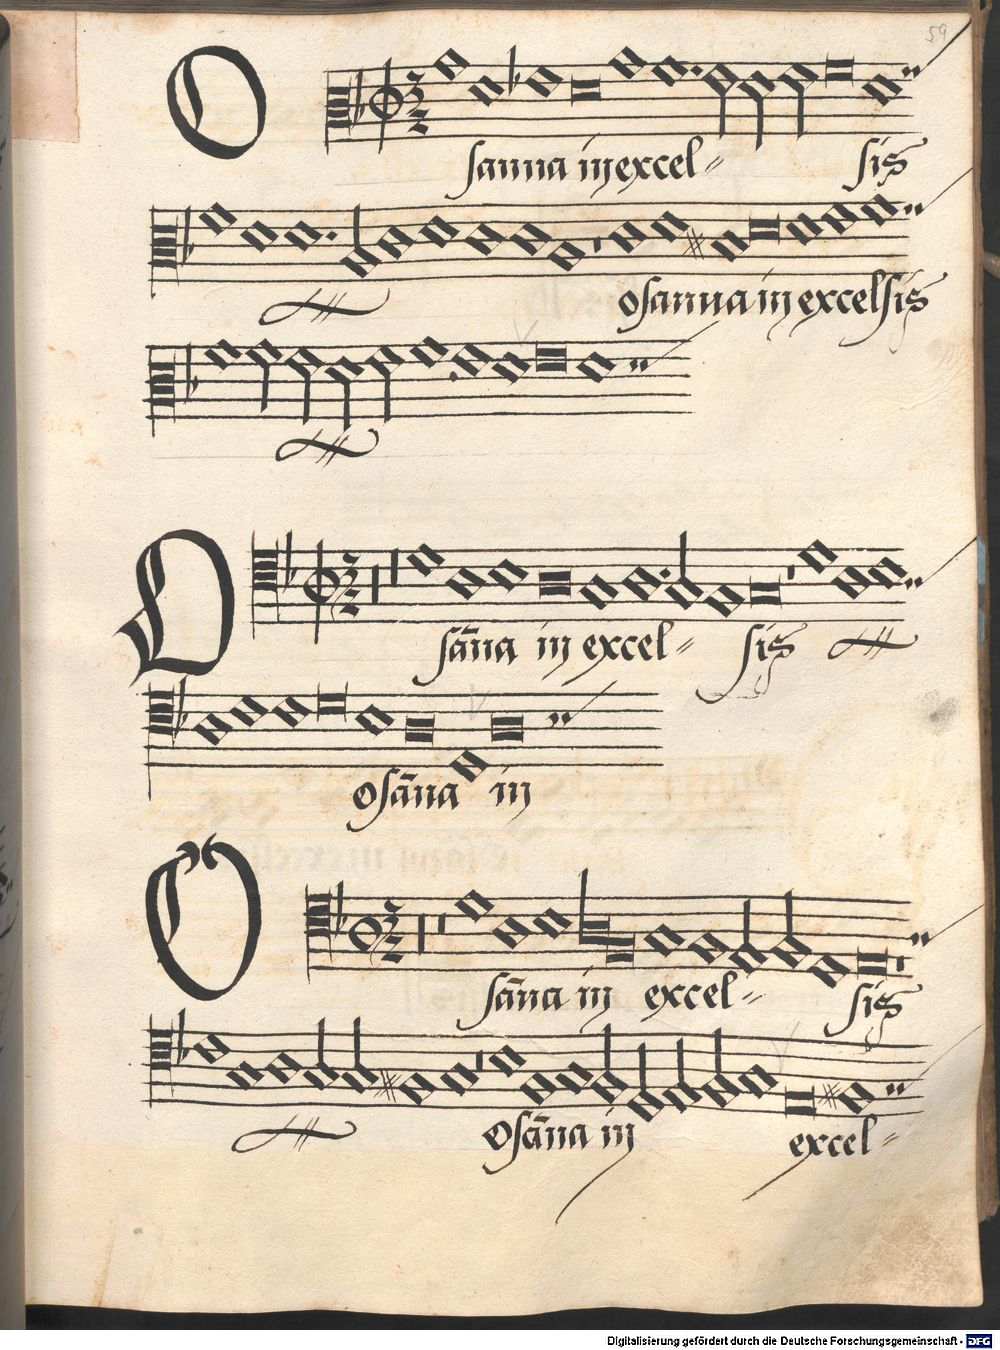 59
O
sanna in excel- sis
osanna in excelsis
O
sāna in excel- sis
osāna in
O
sāna in excel- sis
osāna in excel-
Digitalisierung gefördert durch die Deutsche Forschungsgemeinschaft - DFG